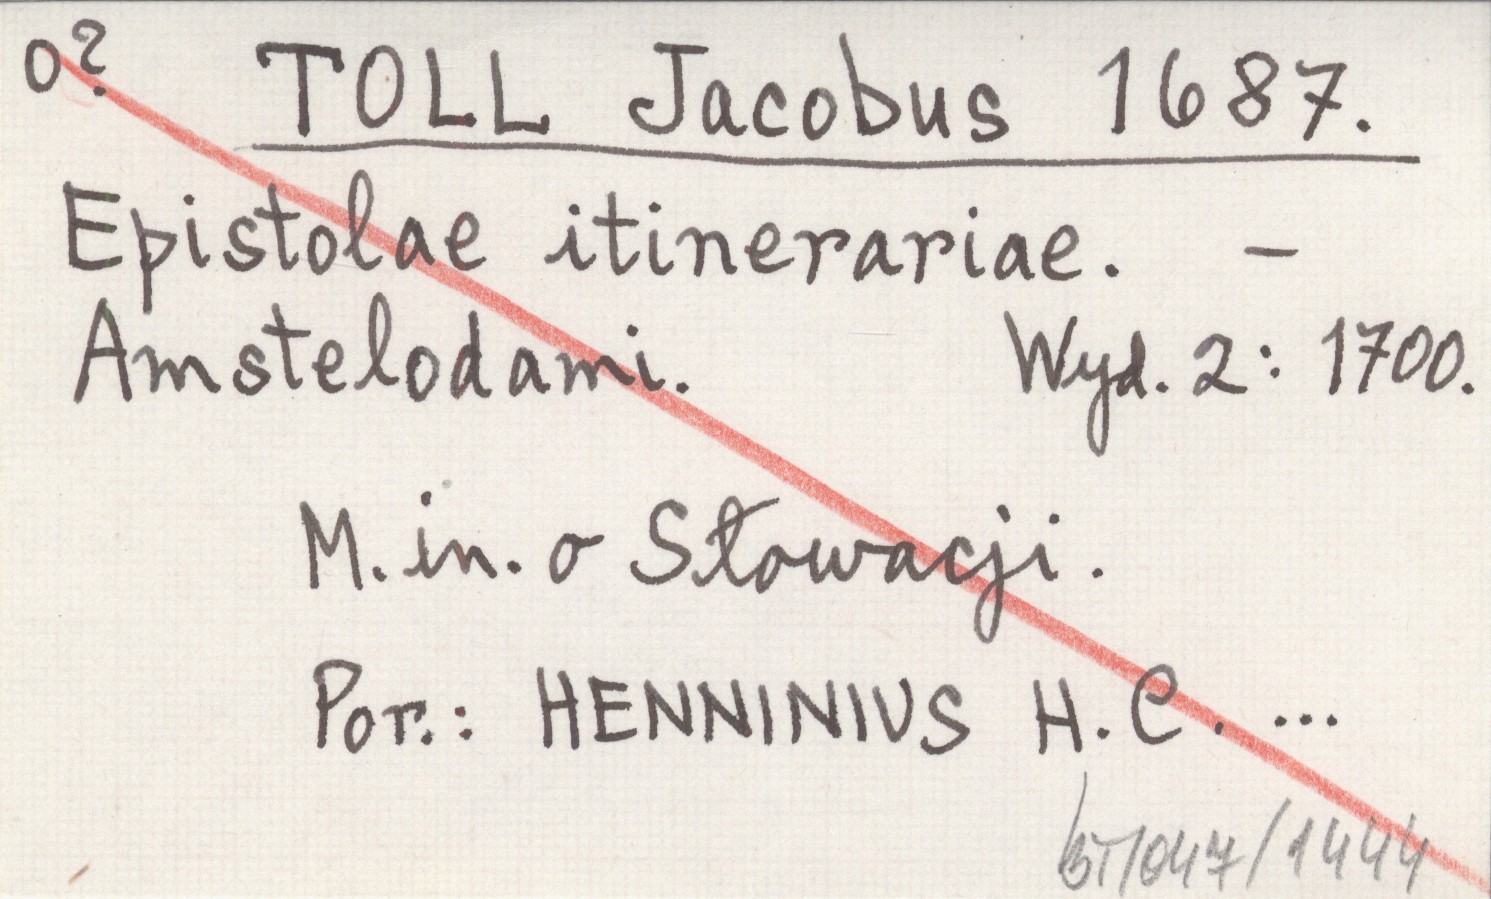 o? TOLL Jacobus 1687.
Epistolae itinerariae. –
Amstelodami. Wyd. 2: 1700.
M. in. o Słowacji.
Por.: HENNINIUS H. C. ...
BT/047/1444